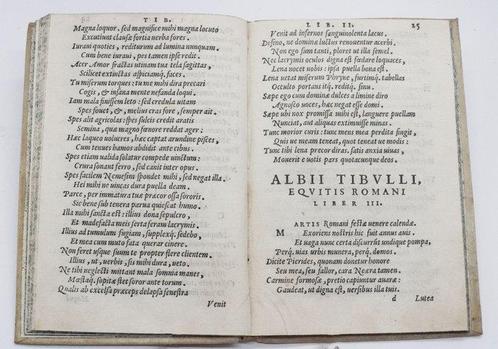 TIB.
Magna loquor, sed magnifice mihi magna locuto
Excutiunt clausæ fortia verba fores.
Iuraui quoties, rediturum ad limina nunquam.
Cum bene iuraui, pes tamen ipse redit.
Acer Amor fractas utinam tua tela sagittas,
Scilicet extinctas aspiciamq; faces.
Tu miserum torques: tu me mihi dira precari
Cogis, & insana mente nefanda loqui.
Iam mala finissem leto: sed credula uitam
Spes fouet, & melius cras fore, semper ait.
Spes alit agricolas: spes sulcis credit aratis
Semina, quæ magno fœnore reddat ager:
Hæc laqueo uolucres, hæc captat arundine pisces,
Cum tenues hamos abdidit ante cibus.
Spes etiam ualida solatur compede uinctum:
Crura sonant ferro, sed canit inter opus.
Spes facilem Nemesim spondet mihi, sed negat illa.
Hei mihi ne uincas dura puella deam.
Parce, per immatura tuæ precor ossa sororis.
Sic bene sub tenera parua quiescat humo.
Illa mihi sancta est: illius dona sepulcro,
Et madefacta meis serta feram lacrymis.
Illius ad tumulum fugiam, supplexq; sedebo,
Et mea cum muto fata querar cinere.
Non feret usque suum te propter flere clientem.
Illius, ut uerbis, sis mihi dura, ueto.
Ne tibi neglecti mittant mala somnia manes,
Mœstaq; sopitæ stet soror ante torum.
Qualis ab excelsa præceps delapsa fenestra
Venit
LIB. II. 25
Venit ad infernos sanguinolenta lacus.
Desino, ne dominæ luctus renouentur acerbi.
Non ego sum tanti, ploret ut illa semel.
Nec lacrymis oculos digna est fœdare loquaces,
Lena nocet nobis: ipsa puella bona est.
Lena uetat miserum Phryne, furtimq; tabellas
Occulto portans itq. reditq. sinu.
Sæpe ego cum dominæ dulces a limine diro
Agnosco uoces, hæc negat esse domi.
Sæpe ubi nox promissa mihi est, languere puellam
Nunciat, aut aliquas extimuisse minas.
Tunc morior curis: tunc mens mea perdita fingit,
Quis ue meam teneat, quot teneat ue modis:
Tunc tibi lena precor diras. satis anxia uiuas,
Mouerit e uotis pars quotacunque deos.
ALBII TIBVLLI,
EQVITIS ROMANI
LIBER III.
MARTIS Romani festæ uenere calendæ.
Exoriens nostris hic fuit annus auis.
Et uaga nunc certa discurrit undique pompa,
Perq. uias urbis munera, perq. domos.
Dicite Pierides, quonam donetur honore
Seu mea, seu fallor, cara Neæra tamen.
Carmine formosæ, pretio capiuntur auaræ:
Gaudeat, ut digna est, uersibus illa tuis.
d Lutea